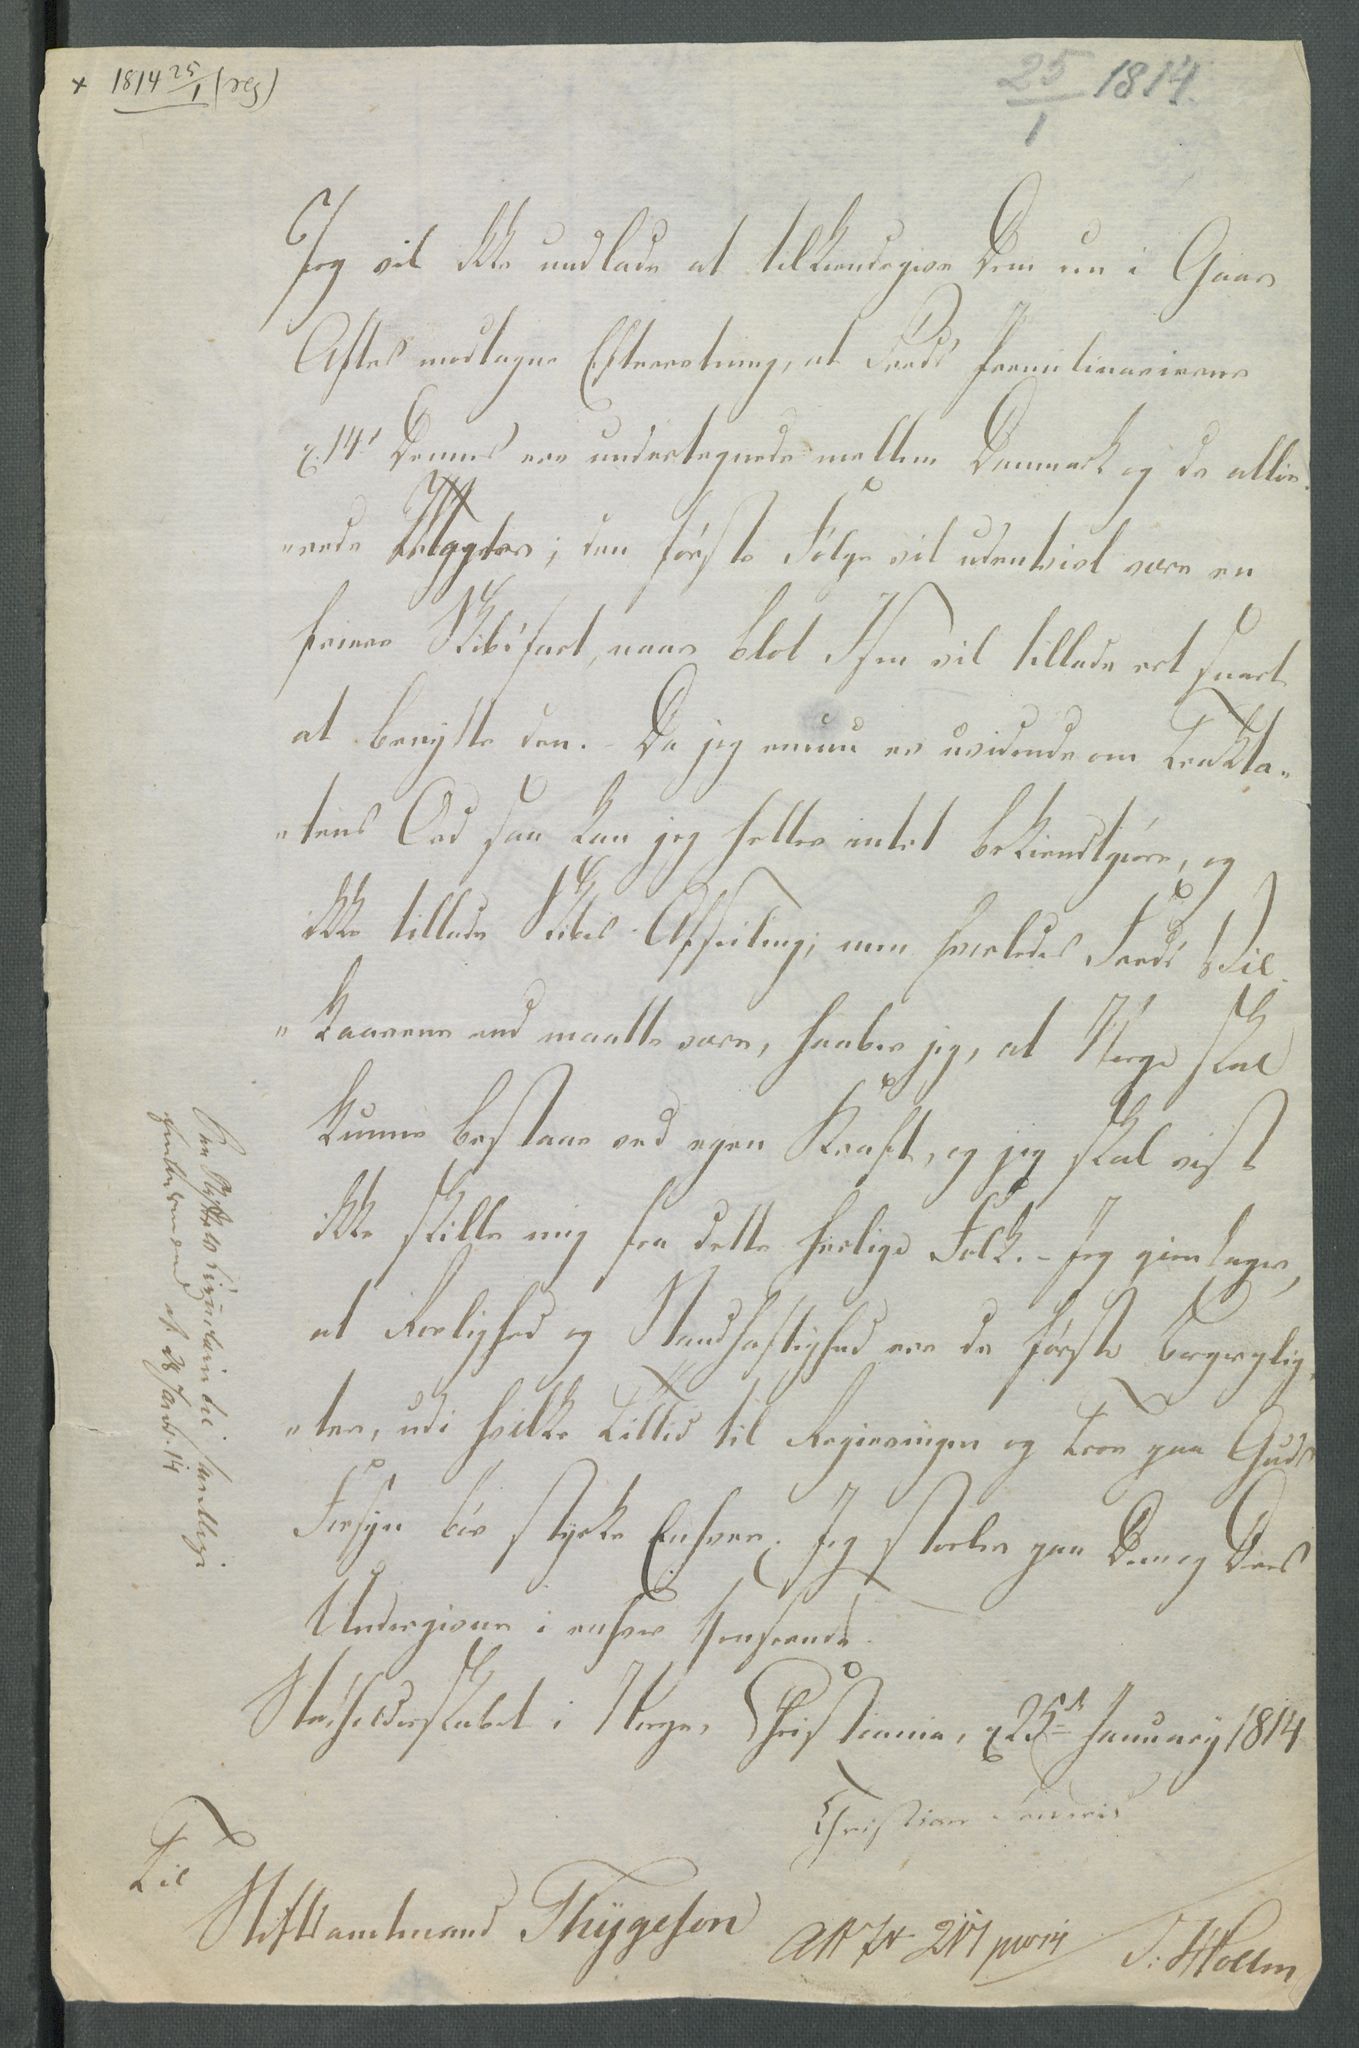 x 1814 25/1 (reg)
25/1 1814.
Jeg vil ikke undlade at tilkiendegive Dem en i Gaar
Aftes modtagne Efterretning, at Freds Præliminairerne
14de Dennes ere undertegnede mellem Danmark og de allie-
"rede Magter; den første Følge vil udentvivl være en
friere Skibsfart, naar blot Isen vil tillade ret snart
at benytte den. - Da jeg ennu er uvidende om Trakta-
"tens Ord saa kan jeg heller intet bekiendtgiøre, og
ikke tillade Skibes Afseiling; men hvorledes Freds Vil-
"kaarene end maatte være, haaber jeg, at Norge skal
kunne bestaae ved egen Kraft, og jeg skal vist
ikke skille mig fra dette herlige Folk. - Jeg gientager,
at Roelighed og Standhaftighed ere de første Borgerplig-
"ter, udi hvilke Tillid til Regieringen og Troe paa Guds
Forsyn bør styrke Enhver. Jeg stoler paa Dem og Deres
Undergivne i enhver Henseende.
Statholderskabet i Norge, Christiania, d 25de January 1814
Christian Frederik
Til
Stiftsamtmand Thygeson
T. Holm
Om Stykket Circulaire til samtlige
af 28 Janr. 14